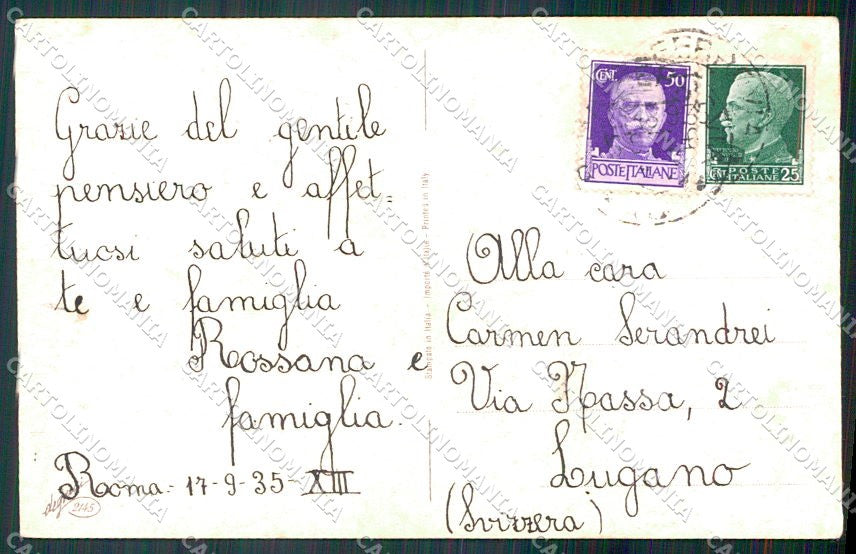 Grazie del gentile
pensiero e affet=
tuosi saluti a
te e famiglia
Rossana e
famiglia.
Roma - 17-9-35-XIII
2145
Stampato in Italia - Importé d'Italie - Printed in Italy
CENT. 50
POSTE ITALIANE
CENT. POSTE ITALIANE 25
Alla cara
Carmen Serandrei
Via Nassa, 2
Lugano
(Svizzera)
CARTOLINOMANIA